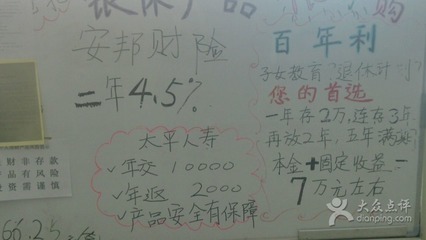 银保产品
购
安邦财险
二年4.5%
百年利
子女教育?退休计划
您的首选
一年存2万,连存3年
再放2年,五年满期
本金+固定收益=
7万元左右
太平人寿
√年交 10000
√年返 2000
√产品安全有保障
财非存款
品有风险
资需谨慎
66.25
大众点评
dianping.com